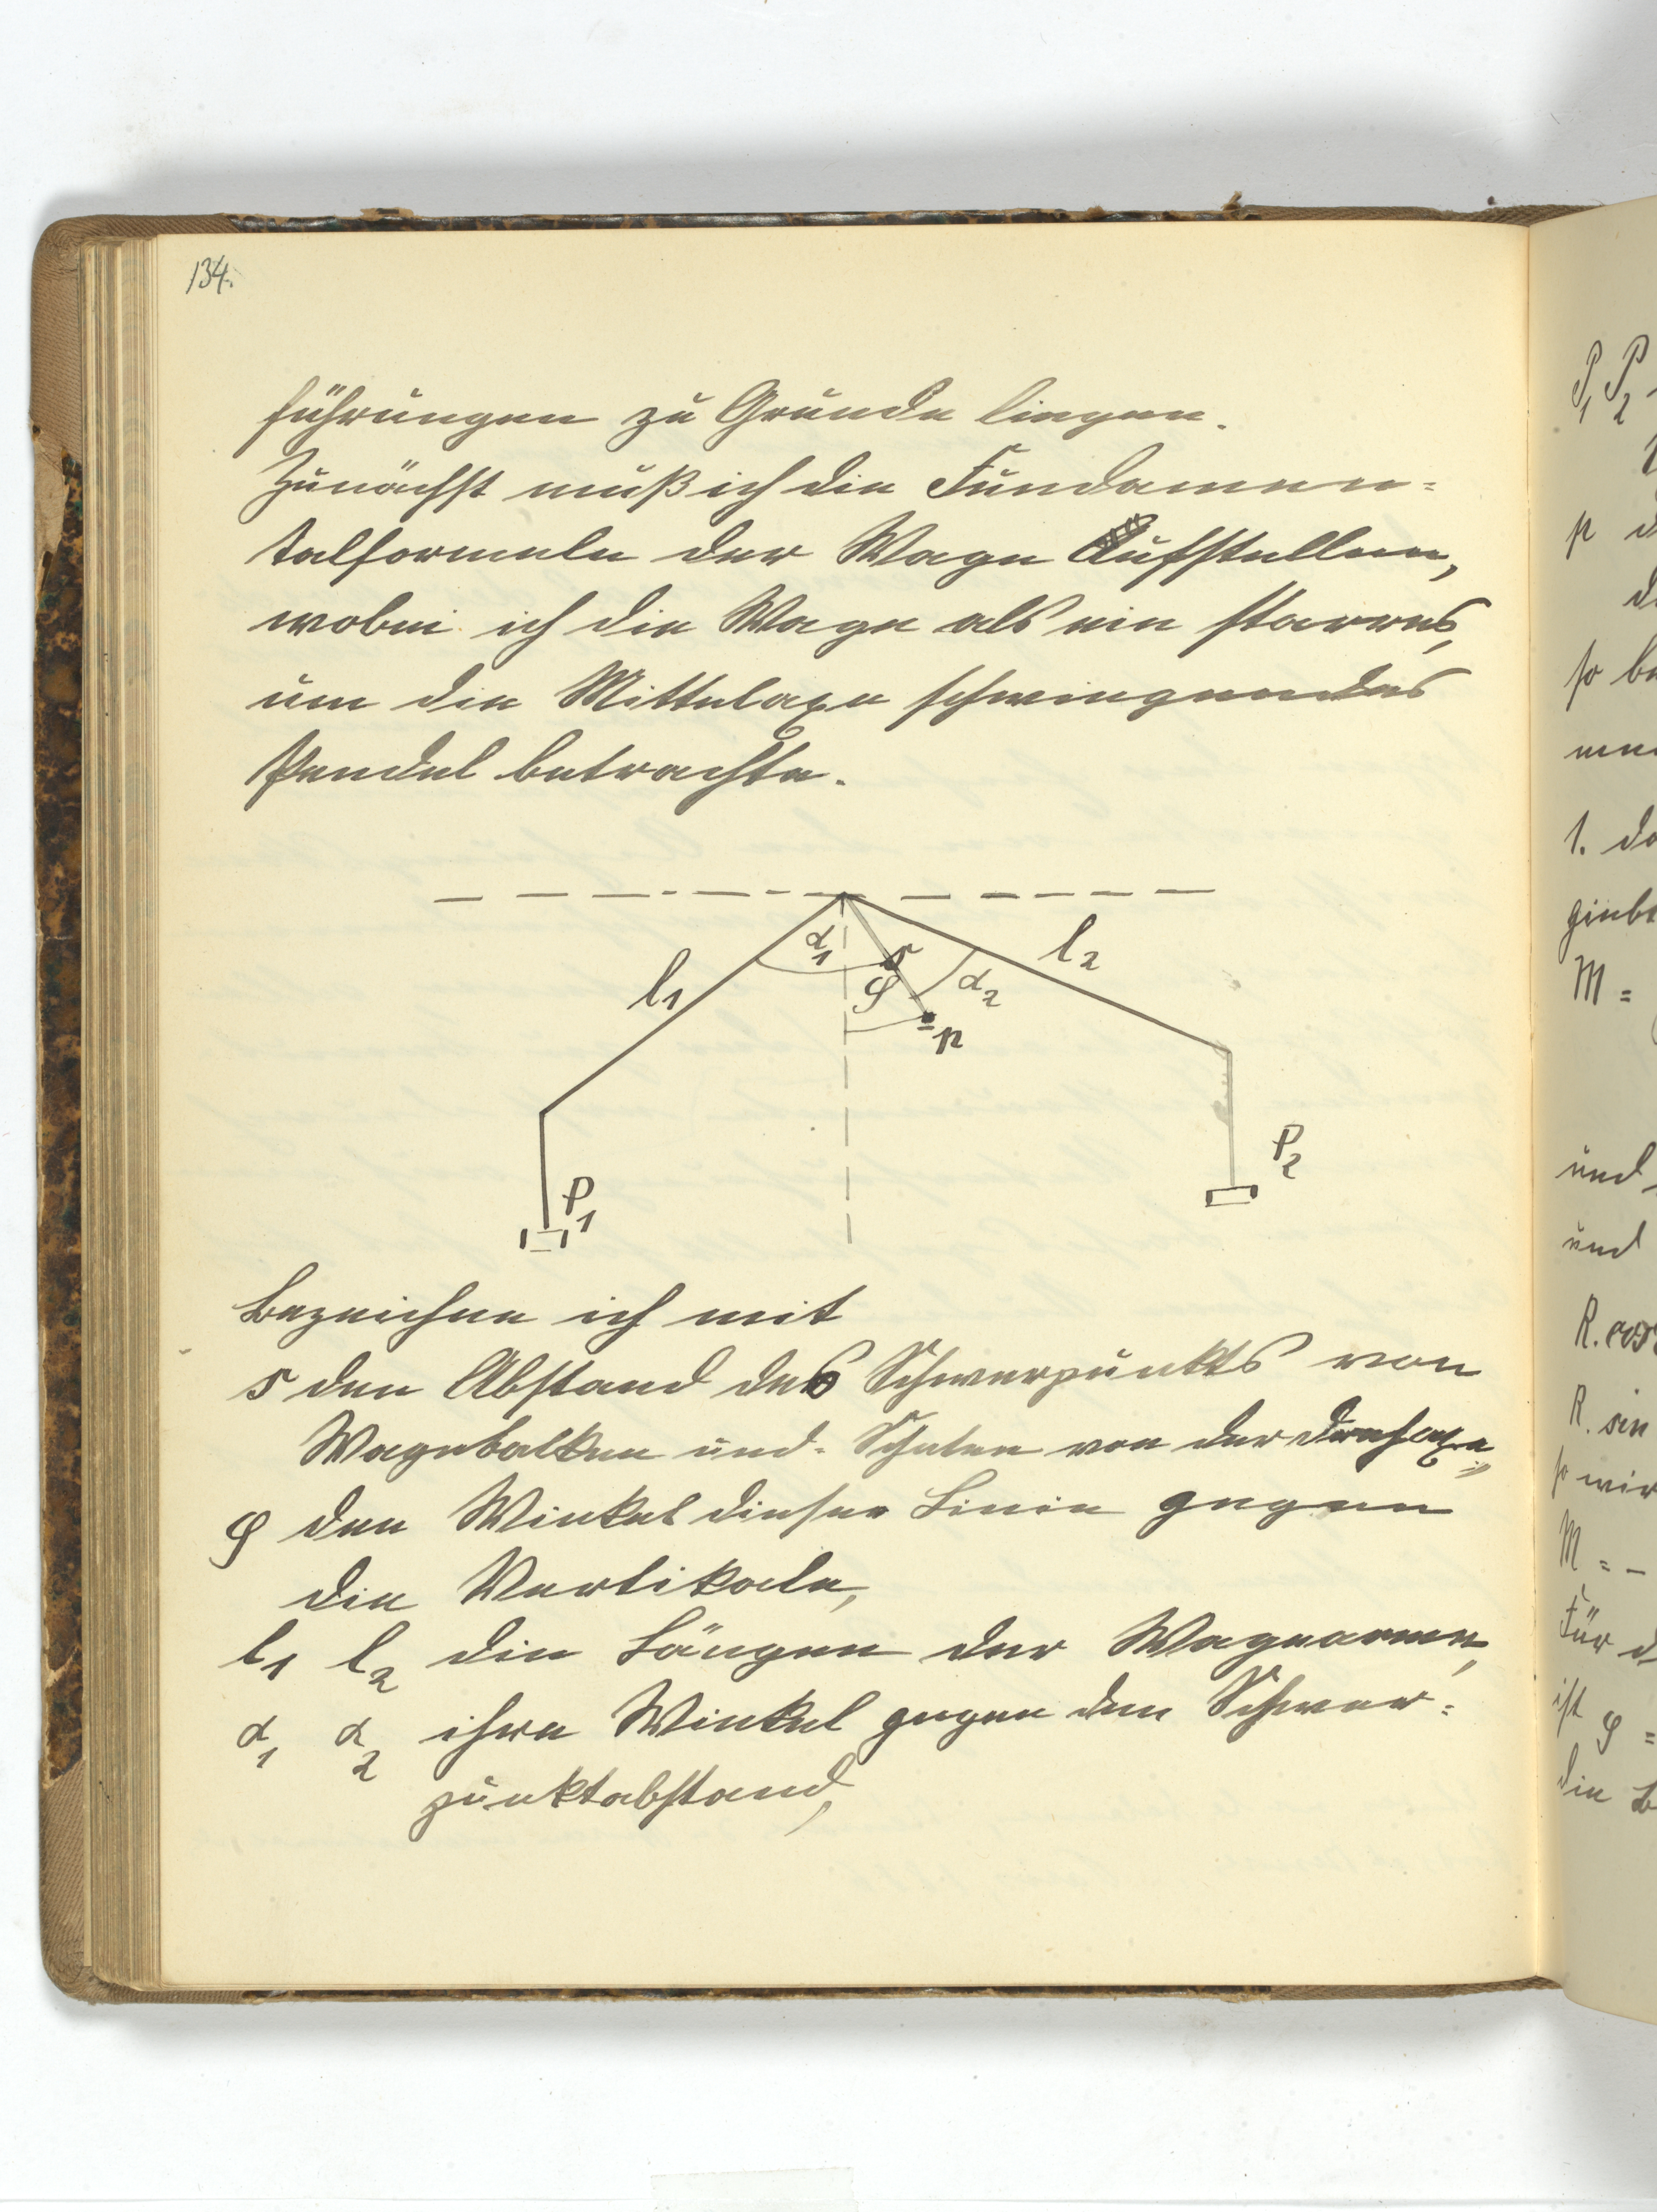 134.
führungen zu Grunde liegen.
Zunächst muß ich die Fundamen-
talformeln der Wage Aufstellen,
wobei ich die Wage als ein starres,
um die Mittelaxe schwingendes
Pendel betrachte.
α₁
s
l₂
l₁
φ
α₂
p
P₂
P₁
Bezeichne ich mit
s den Abstand des Schwerpunkts von
Wagebalken und Schalen von der Drehaxe,
φ den Winkel dieser Linie gegen
die Vertikale,
l₁ l₂ die Längen der Wagearme,
α₁ α₂ ihre Winkel gegen den Schwer-
punktabstand,
P₁ P₂
p d
so be
1. da
giebt
M =
und
und
R. cos
R. sin
so wir
M = -
Für d
ist φ =
die B